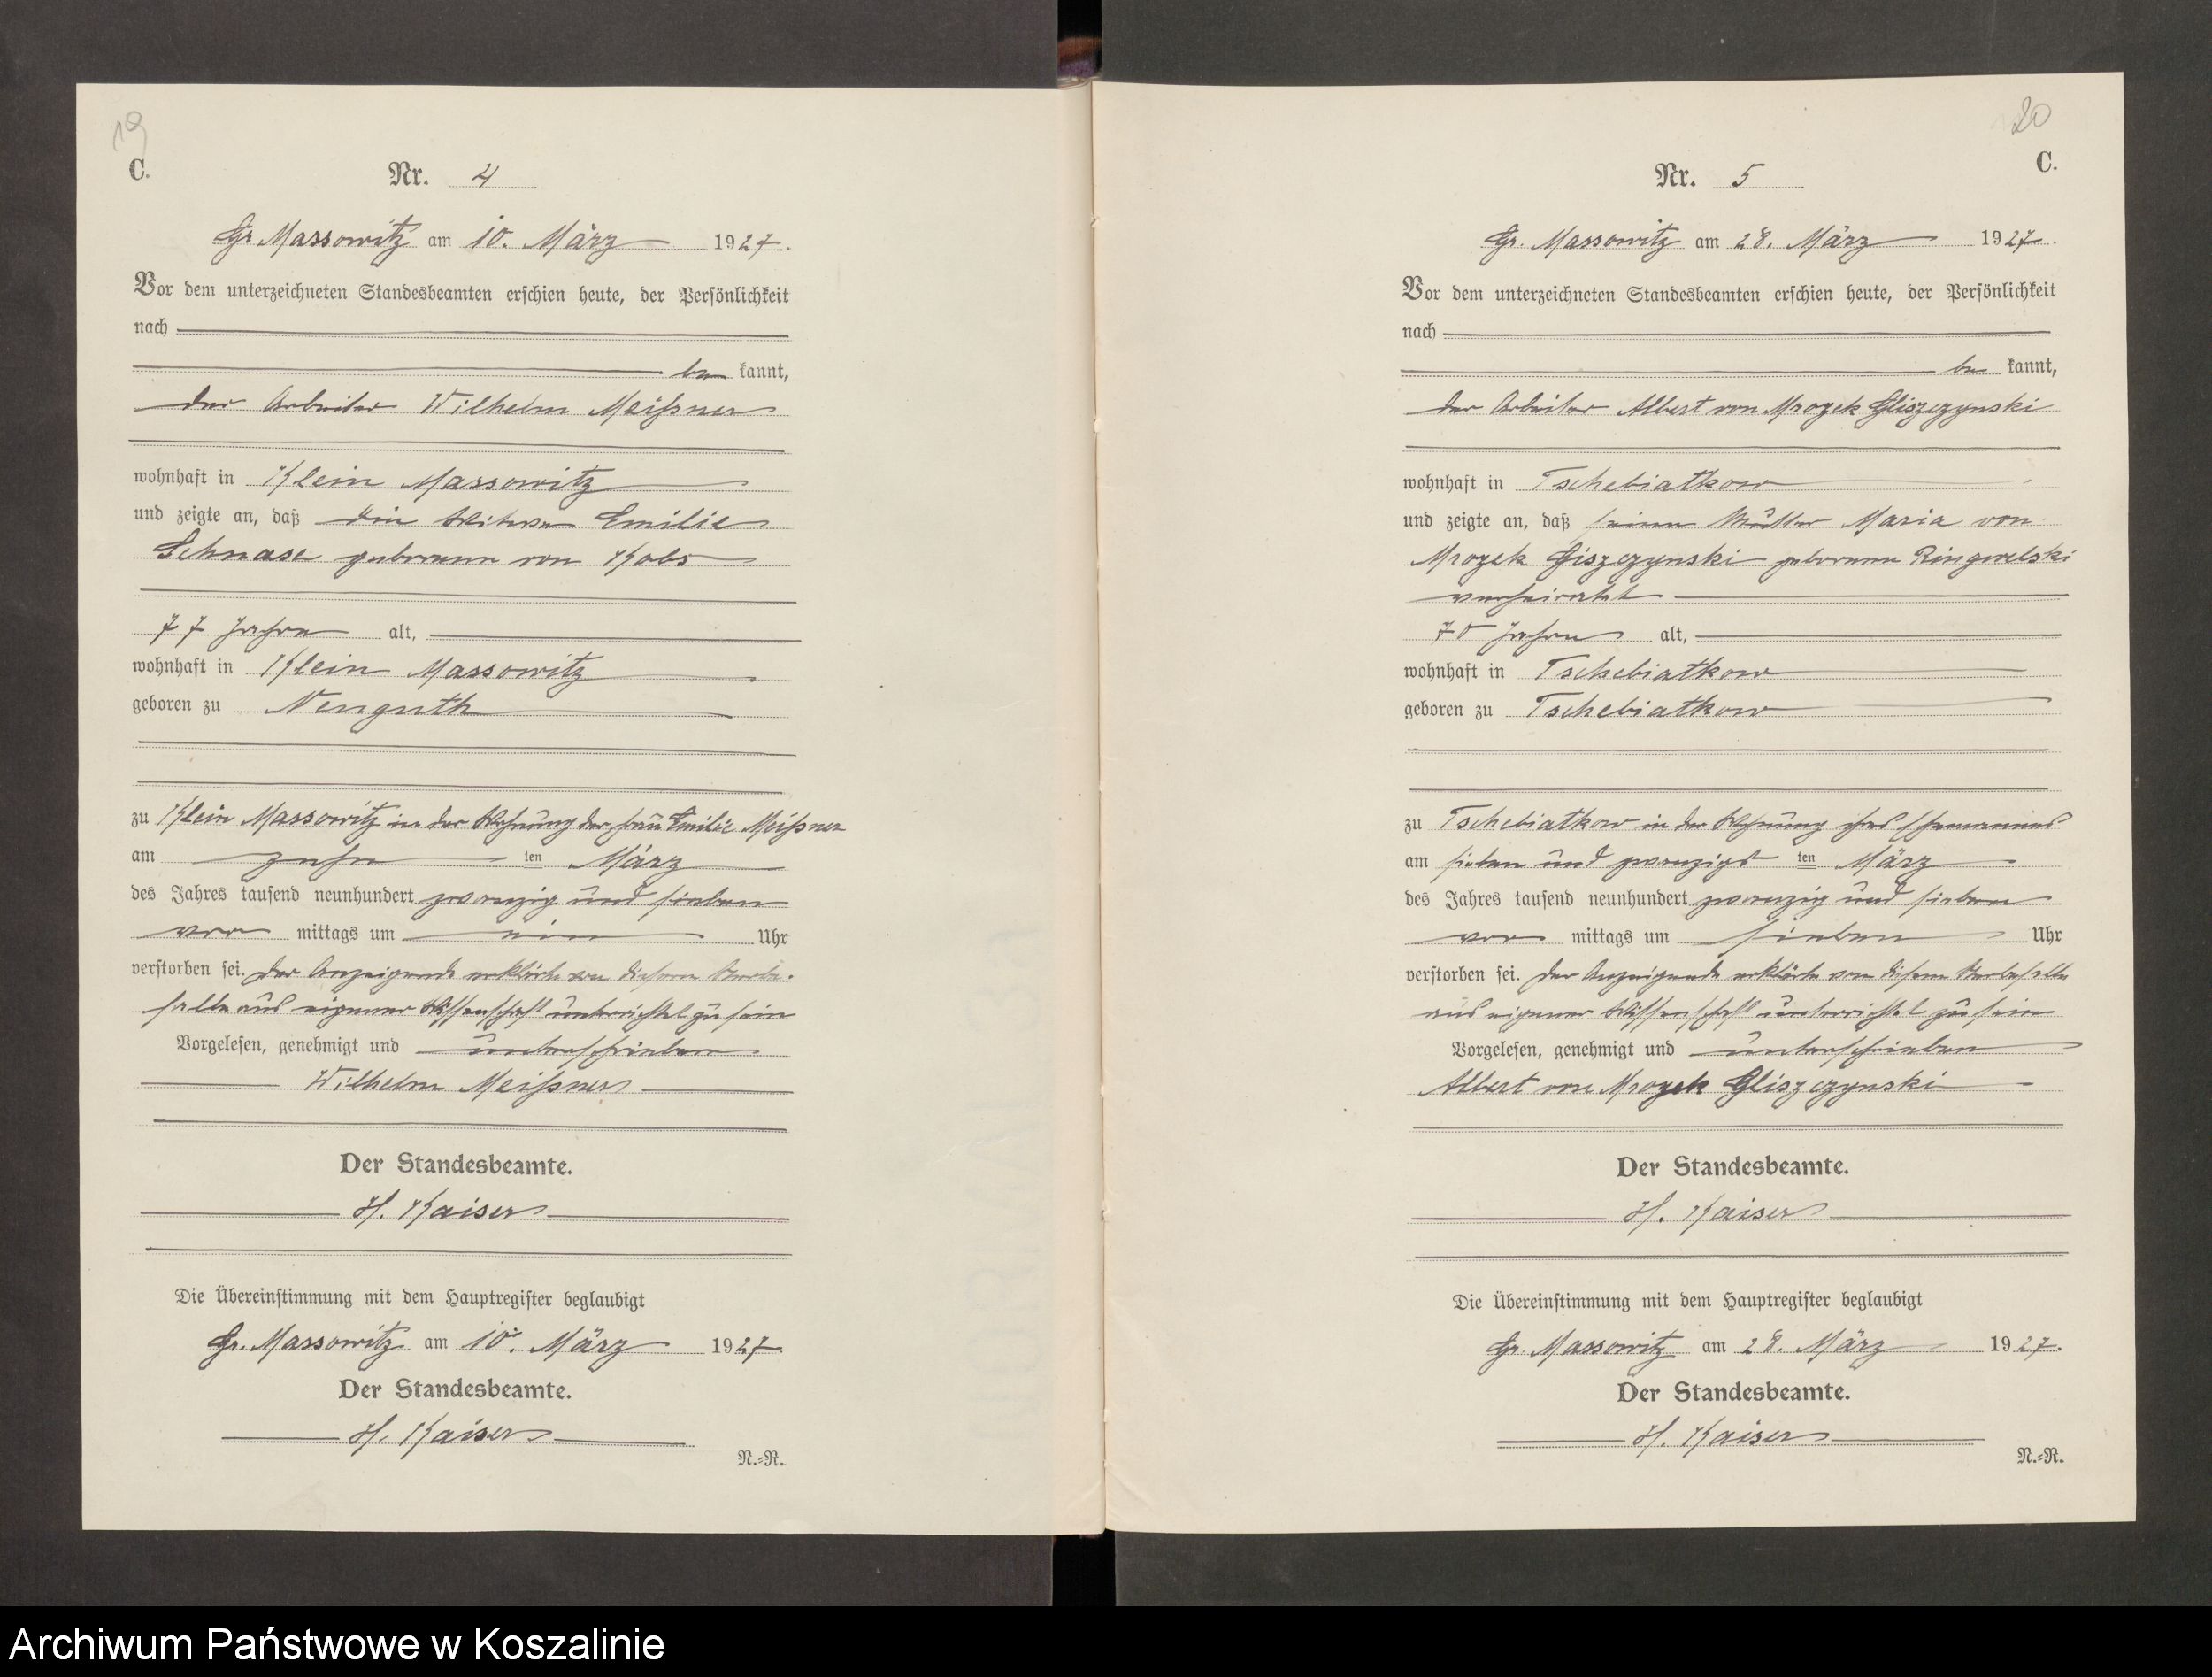 19
C.
Nr. 4
Gr Massowitz am 10. März 1927.
Vor dem unterzeichneten Standesbeamten erschien heute, der Persönlichkeit
nach
be kannt,
der Arbeiter Wilhelm Meißner
wohnhaft in Klein Massowitz
und zeigte an, daß die Witwe Emilie
Schnase geborene von Kobs
77 Jahre alt,
wohnhaft in Klein Massowitz
geboren zu Neuguth
zu Klein Massowitz in der Wohnung der Frau Emilie Meißner
am zehn ten März
des Jahres tausend neunhundert zwanzig und sieben
vor mittags um ein Uhr
verstorben sei. Der Anzeigende erklärte von diesem Sterbe-
falle aus eigener Wissenschaft unterrichtet zu sein
Vorgelesen, genehmigt und unterschrieben
Wilhelm Meißner
Der Standesbeamte.
H. Kaiser
Die Übereinstimmung mit dem Hauptregister beglaubigt
Gr. Massowitz am 10. März 1927.
Der Standesbeamte.
H. Kaiser
N.=R.
20
C.
Nr. 5
Gr. Massowitz am 28. März 1927.
Vor dem unterzeichneten Standesbeamten erschien heute, der Persönlichkeit
nach
be kannt,
der Arbeiter Albert von Mrozek Gliszczynski
wohnhaft in Tschebiatkow
und zeigte an, daß seine Mutter Maria von
Mrozek Giszczynski geborene Ringwelski
verheiratet
70 Jahre alt,
wohnhaft in Tschebiatkow
geboren zu Tschebiatkow
zu Tschebiatkow in der Wohnung ihres Ehemannes
am sieben und zwanzigs ten März
des Jahres tausend neunhundert zwanzig und sieben
vor mittags um sieben Uhr
verstorben sei. Der Anzeigende erklärte von diesem Sterbefalle
aus eigener Wissenschaft unterrichtet zu sein
Vorgelesen, genehmigt und unterschrieben
Albert von Mrozek Gliszczynski
Der Standesbeamte.
H. Kaiser
Die Übereinstimmung mit dem Hauptregister beglaubigt
Gr. Massowitz am 28. März 1927.
Der Standesbeamte.
H. Kaiser
N.=R.
Archiwum Państwowe w Koszalinie